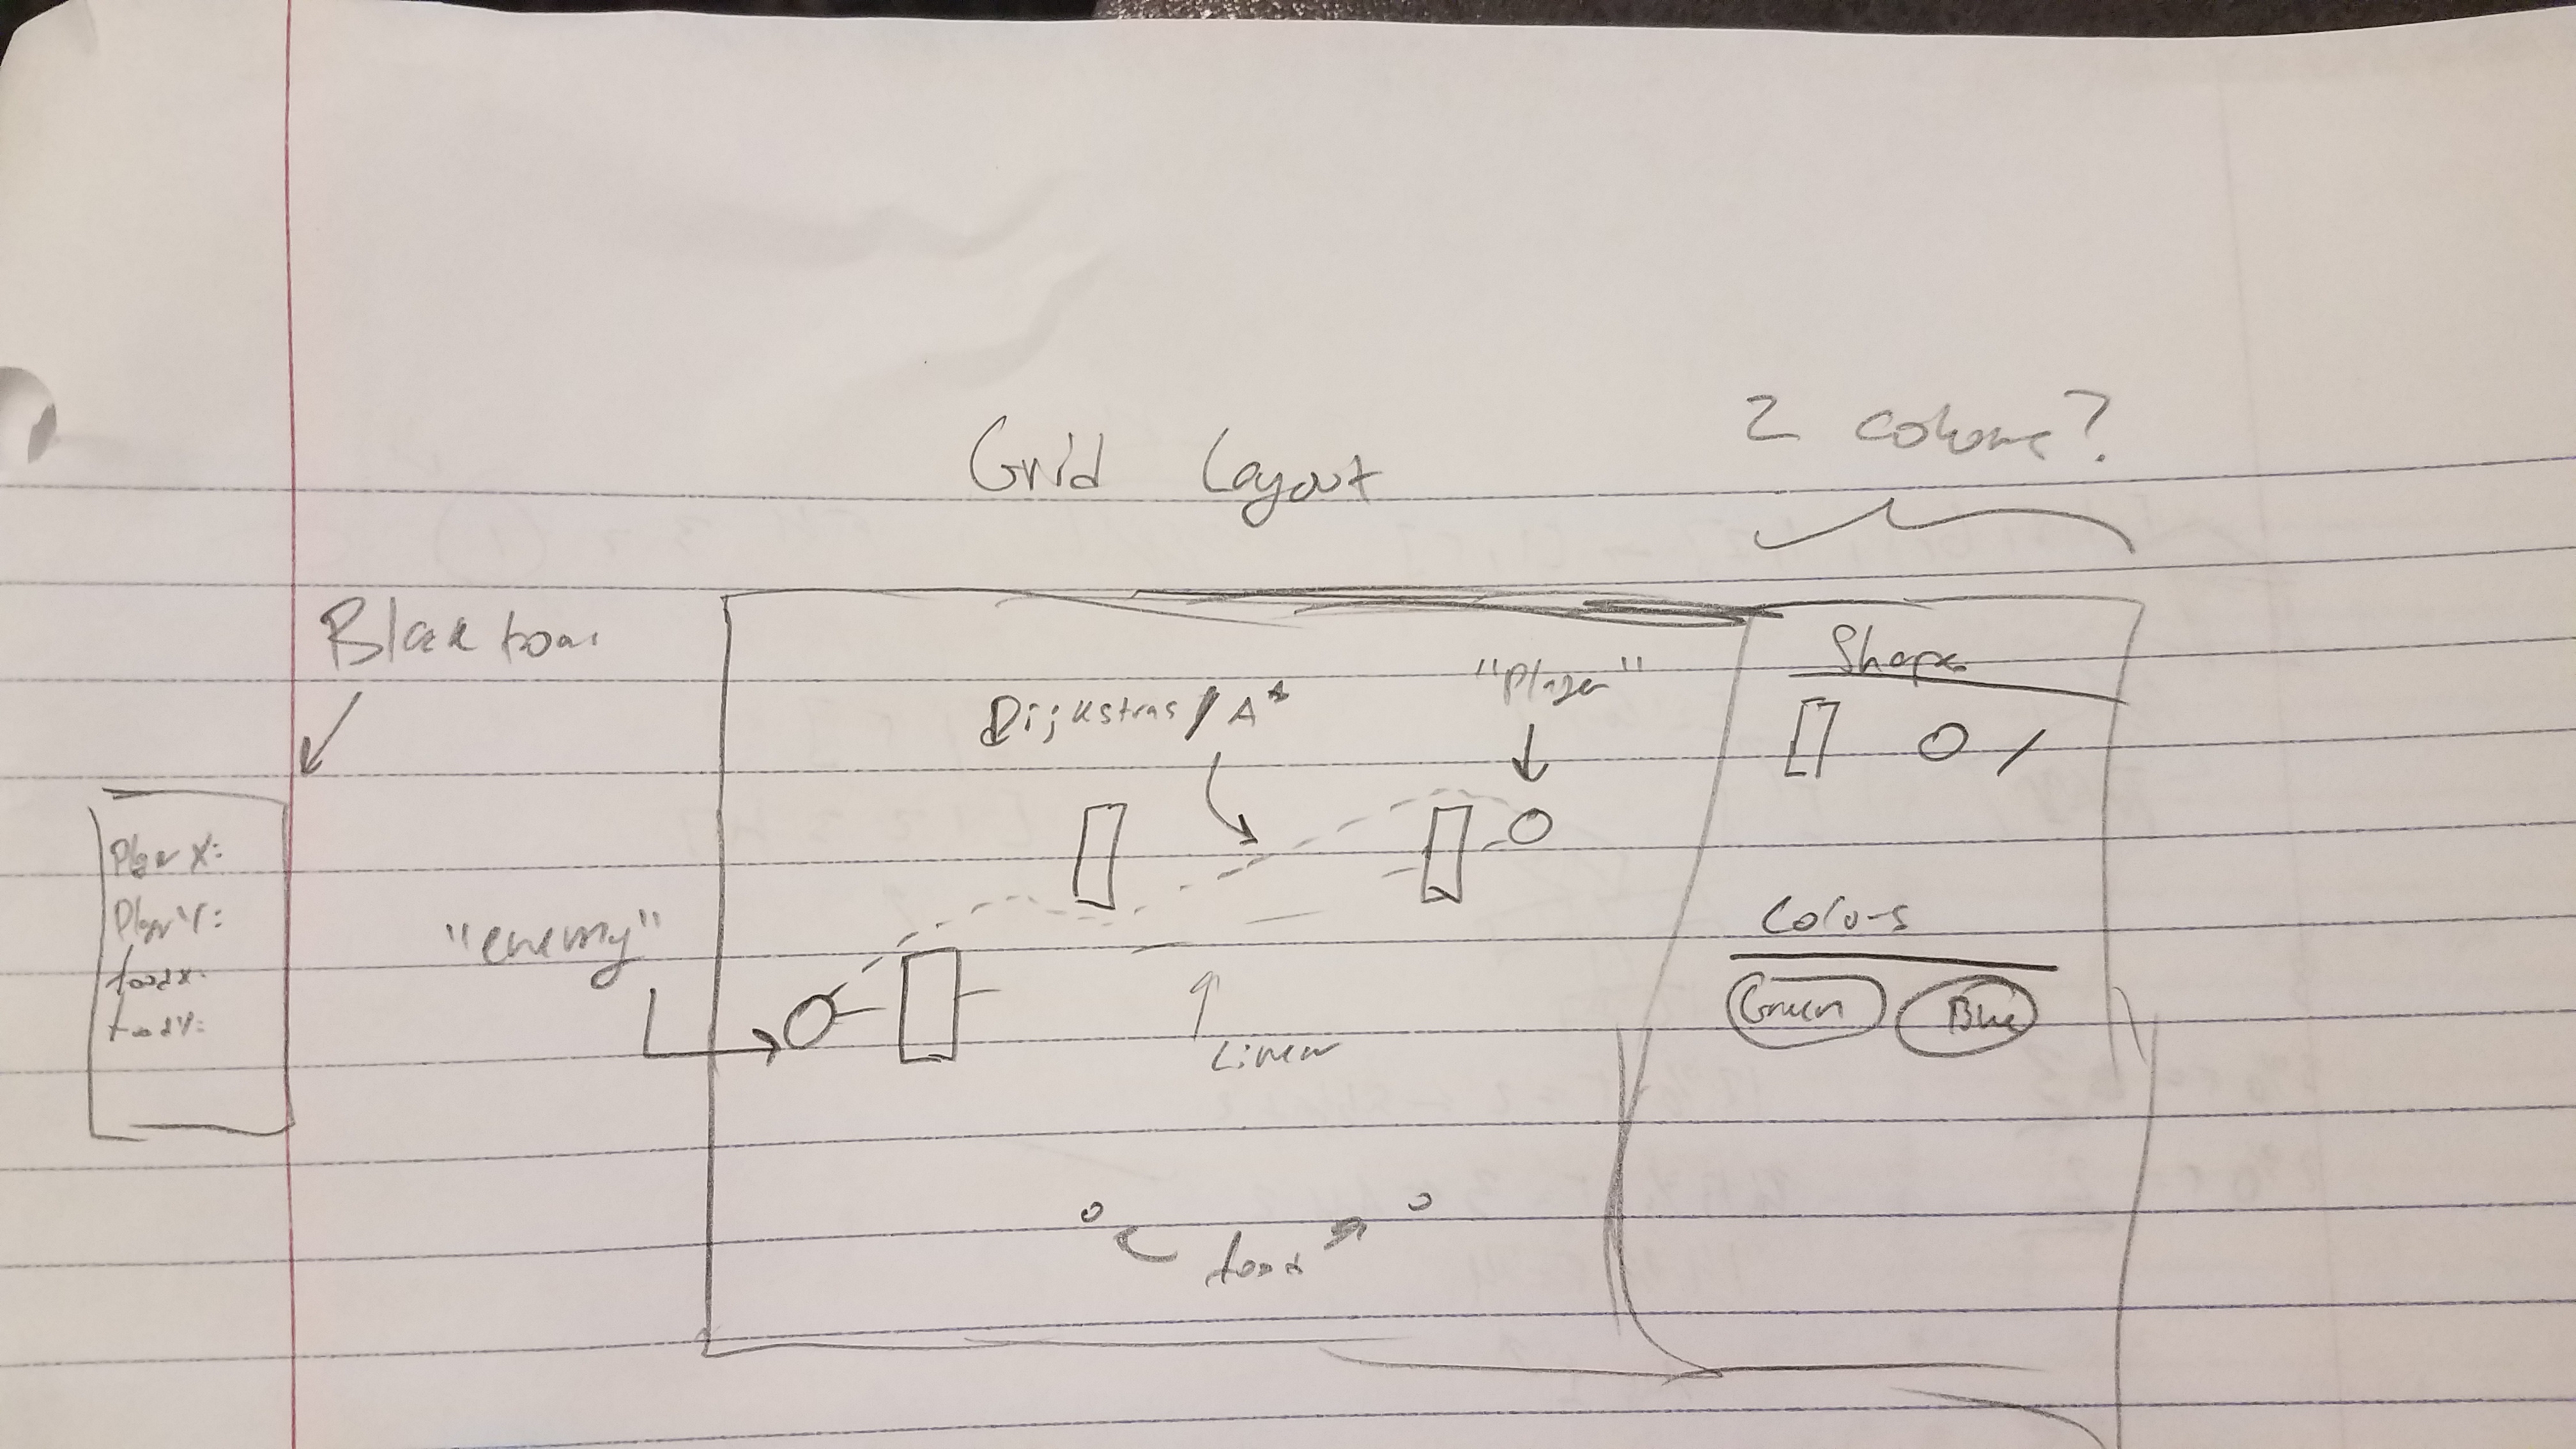 Grid Layout
2 columns?
Player X:
Player Y:
food X:
food Y:
"enemy"
Dijkstras/A*
"Player"
Linear
food
Shapes
Colors
Green
Blue